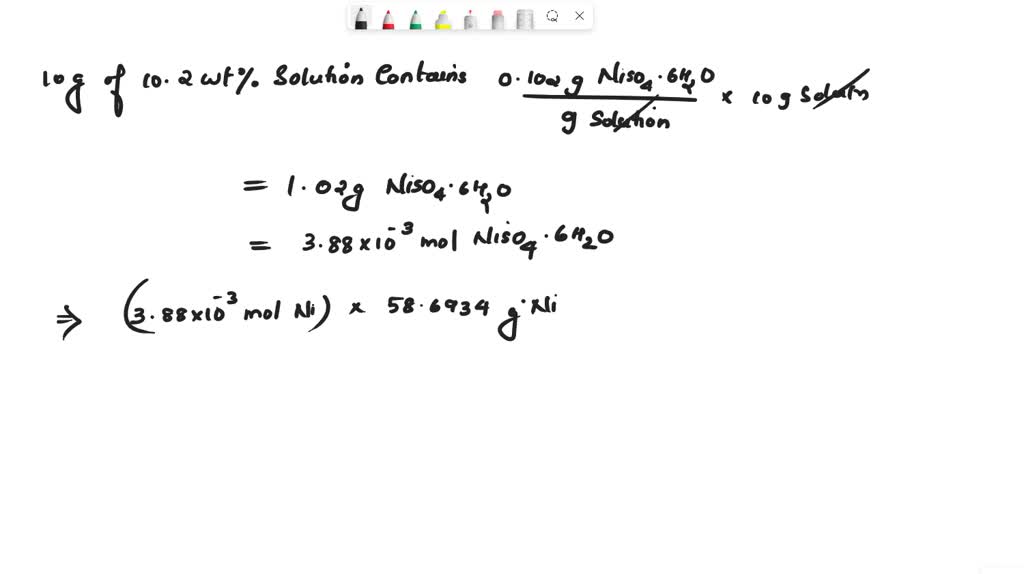 10g of 10.2 wt% Solution Contains 0.102 g NiSO4·6H2O / g Solution × 10 g Soluin
= 1.02g NiSO4·6H2O
= 3.88×10^-3 mol NiSO4·6H2O
⇒ (3.88×10^-3 mol Ni) × 58.6934 g·Ni